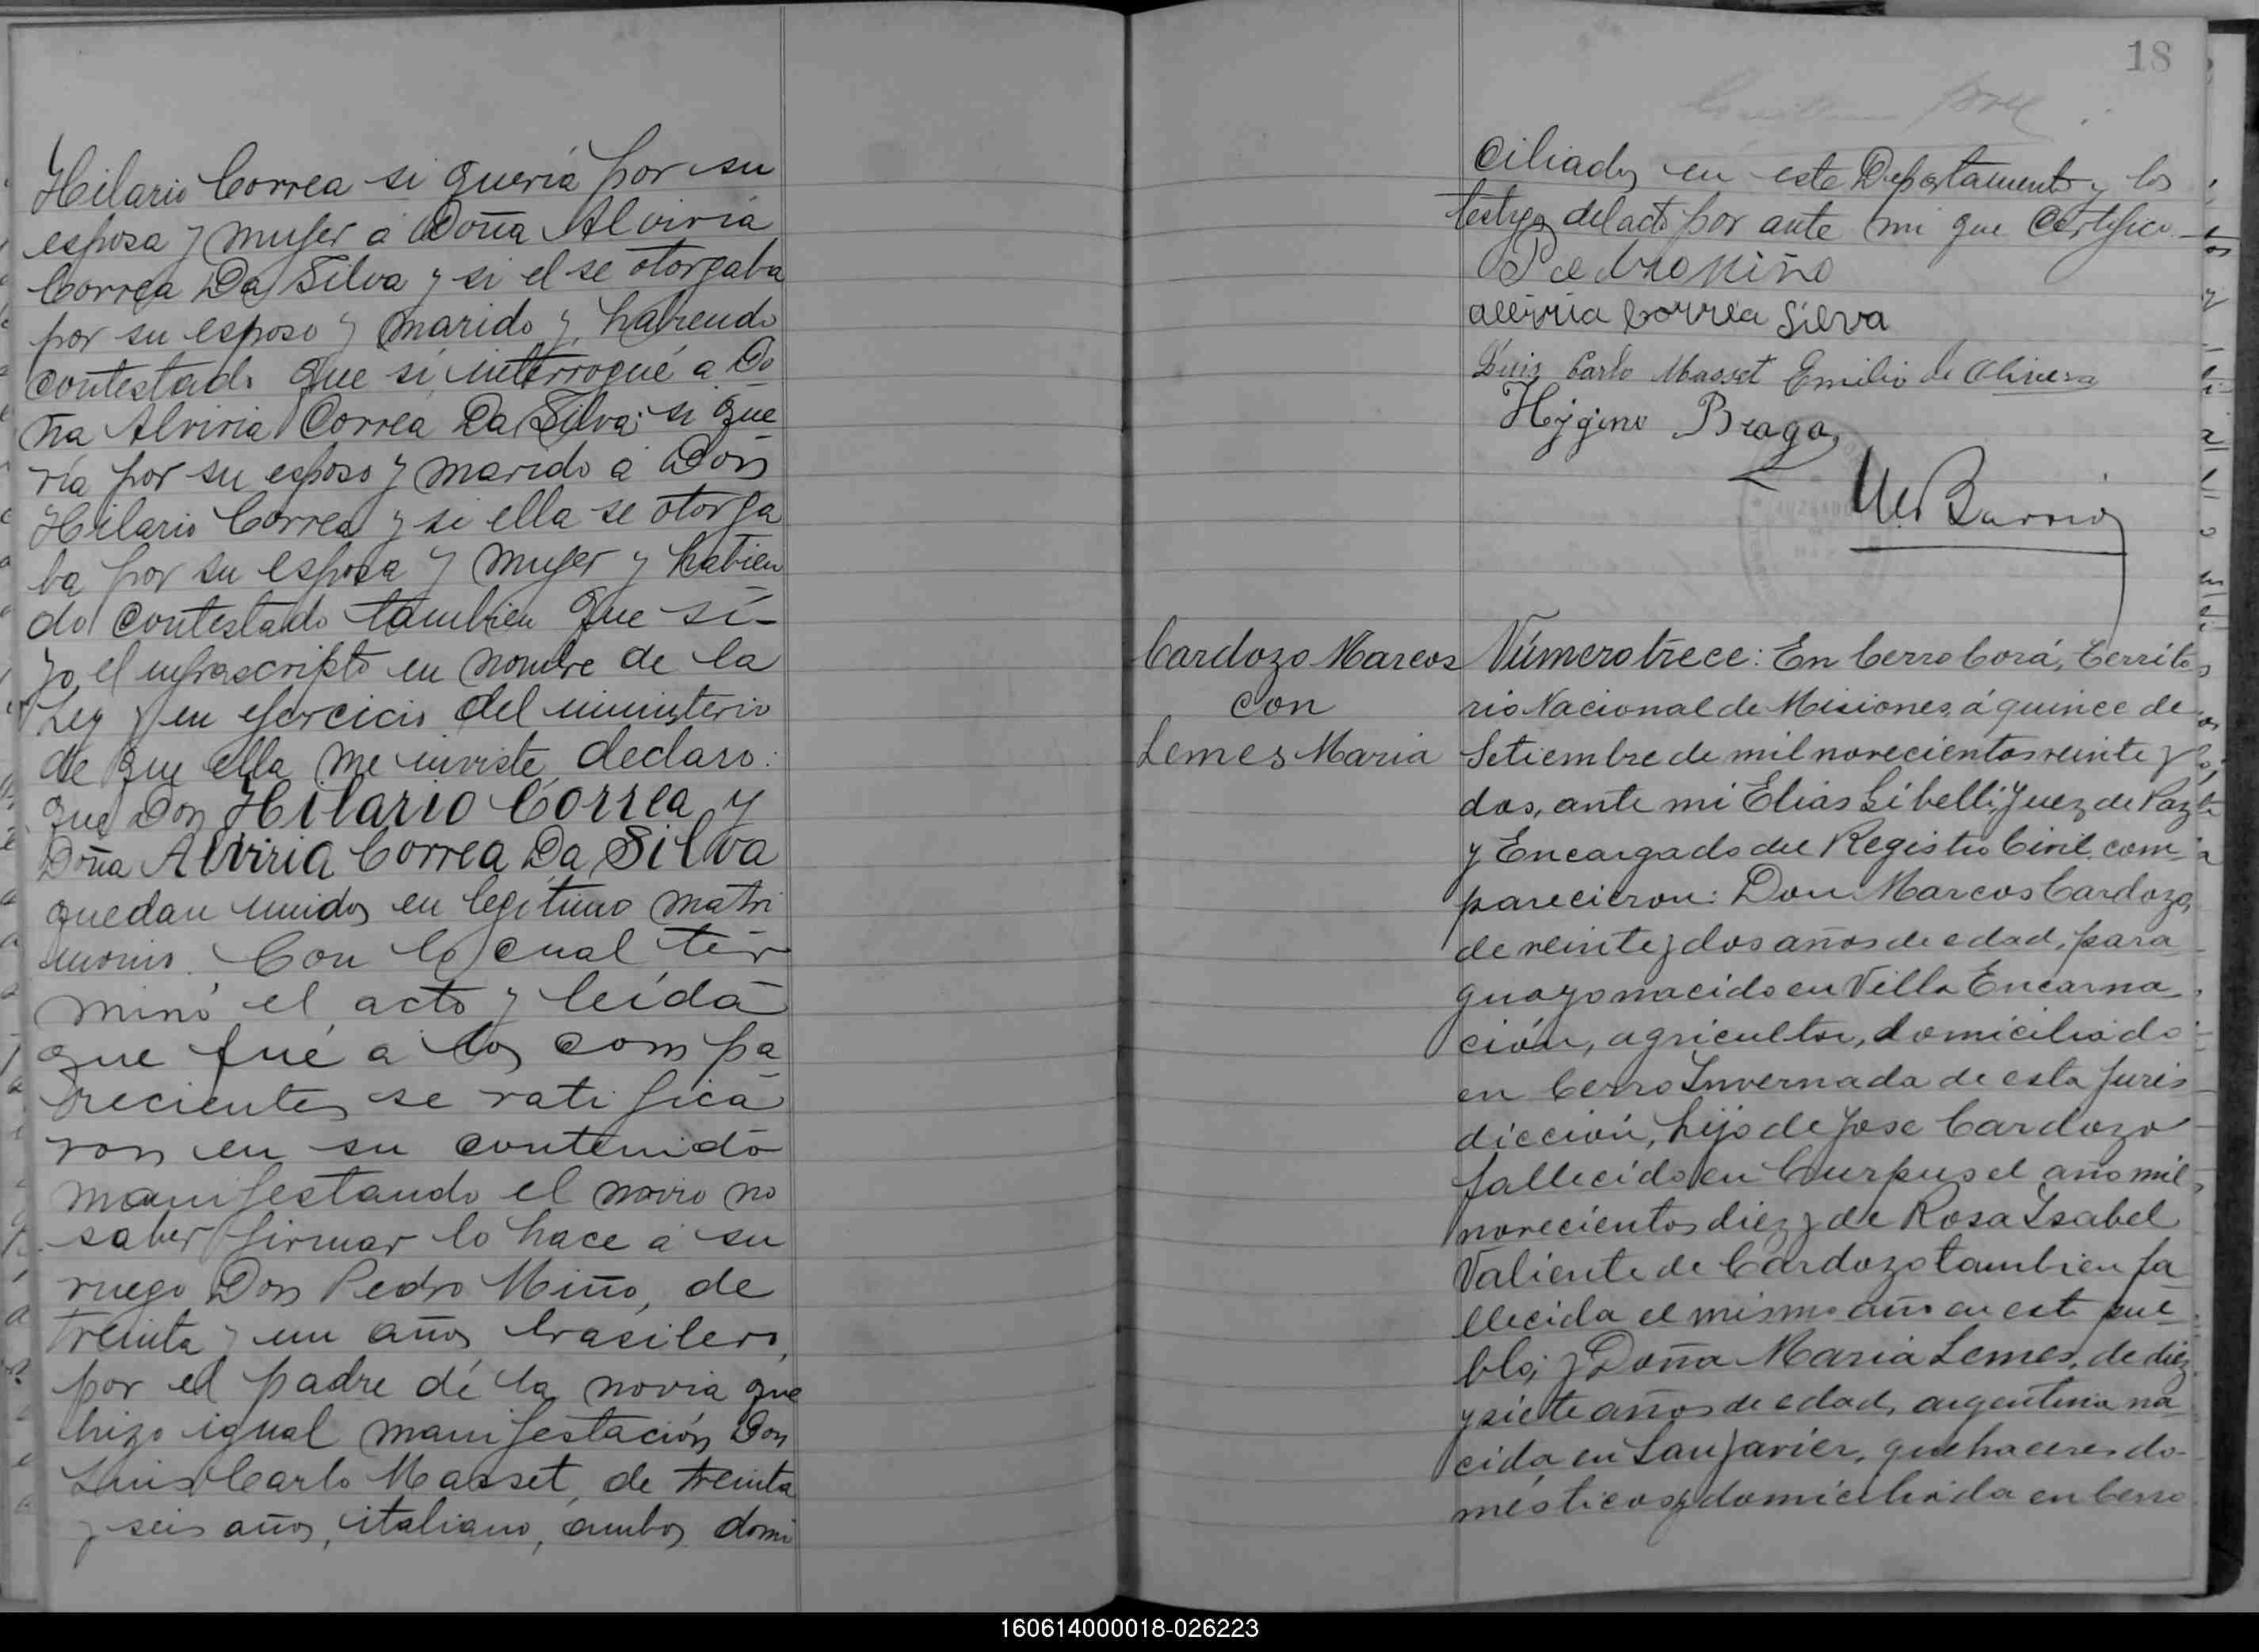 Hilario Correa si quería por su
esposa y mujer á Doña Alviria
Correa Da Silva y si el se otorgaba
por su esposo y marido y, habiendo
contestado que sí, interrogué a Do
ña Alviria Correa Da Silva si que
ría por su esposo y marido á Don
Hilario Correa y si ella se otorga
ba por su esposa y mujer y habien
do contestado tambien que sí-
Yo, el infrascripto en nombre de la
Ley y en ejercicio del ministerio
de que ella me inviste, declaro:
que Don Hilario Correa y
Doña Alviria Correa Da Silva
quedan unidos en legitimo matri
monio. Con lo cual ter
minó el acto y leída
que fué a los compa
recientes se ratifica
ron en su contenido
manifestando el novio no
saber firmar lo hace á su
ruego Don Pedro Miño, de
treinta y un años, brasilero,
por el padre de la novia que
hizo igual manifestación Don
Luis Carlo Masset, de treinta
y seis años, italiano, ambos domi
18
ciliados en este Departamento y los
testigos del acto por ante mi que certifico
Pedro Miño
Alviria Correa Silva
Luis Carlo Masset Emilio de Olivera
Hygino Braga
Cardozo Marcos
con
Lemes Maria
Número trece: En Cerro Corá, Territo
rio Nacional de Misiones, á quince de
Setiembre de mil novecientos veinte y
dos, ante mi Elias Libelli, Juez de Paz
y Encargado del Registro Civil, com
parecieron: Don Marcos Cardozo,
de veinte y dos años de edad, para
guayo nacido en Villa Encarna
ción, agricultor, domiciliado
en Cerro Invernada de esta juris
dicción, hijo de Jose Cardozo
fallecido en Curpus el año mil
novecientos diez y de Rosa Isabel
Valiente de Cardozo tambien fa
llecida el mismo año en este pue
blo; y Doña Maria Lemes, de diez
y siete años de edad, argentina na
cida en San Javier, quehaceres do-
mésticos y domiciliada en Cerro
160614000018-026223